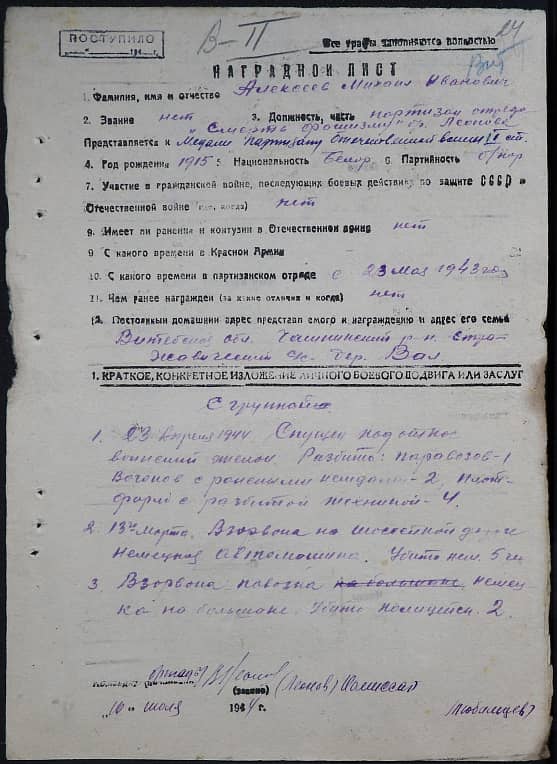 24
ПОСТУПИЛО
194 г.
В-II
Все графы заполняются полностью
НАГРАДНОЙ ЛИСТ
1. Фамилия, имя и отчество Алексеев Михаил Иванович
2. Звание нет 3. Должность, часть партизан отряда
"Смерть фашизму" бр. Леонова
Представляется к Медали Партизану Отечественной войны II ст.
4. Год рождения 1915 5. Национальность Белор. 6. Партийность б/пар
7. Участие в гражданской войне, последующих боевых действиях по защите СССР и
Отечественной войне (где, когда) нет
9. Имеет ли ранения и контузии в Отечественной войне нет
9 С какого времени в Красной Армии
10. С какого времени в партизанском отряде с 23 мая 1943 года
11. Чем ранее награжден (за какие отличия и когда) нет
12. Постоянный домашний адрес представляемого к награждению и адрес его семьи
Витебской обл. Чашникский р-н. Стра-
жевический с/с. дер. Вал
1. КРАТКОЕ, КОНКРЕТНОЕ ИЗЛОЖЕНИЕ ЛИЧНОГО БОЕВОГО ПОДВИГА ИЛИ ЗАСЛУГ
С группой
1. 23 апреля 1944. Спущен под откос
воинский эшелон. Разбито: паравозов-1
Вогонов с ранеными немцами-2, плат-
форм с разбитой техникой-4.
2. 13го марта. Взорвона на шоссейной дороге
немецкая автомашина. Убито нем. 5 чел
3. Взорвона повозка на большаке немец
ка на большаке. Убито полицейск. 2.
бригады (Леонов) Комиссар
(звание)
"16" июля 1944 г. Любимцев)